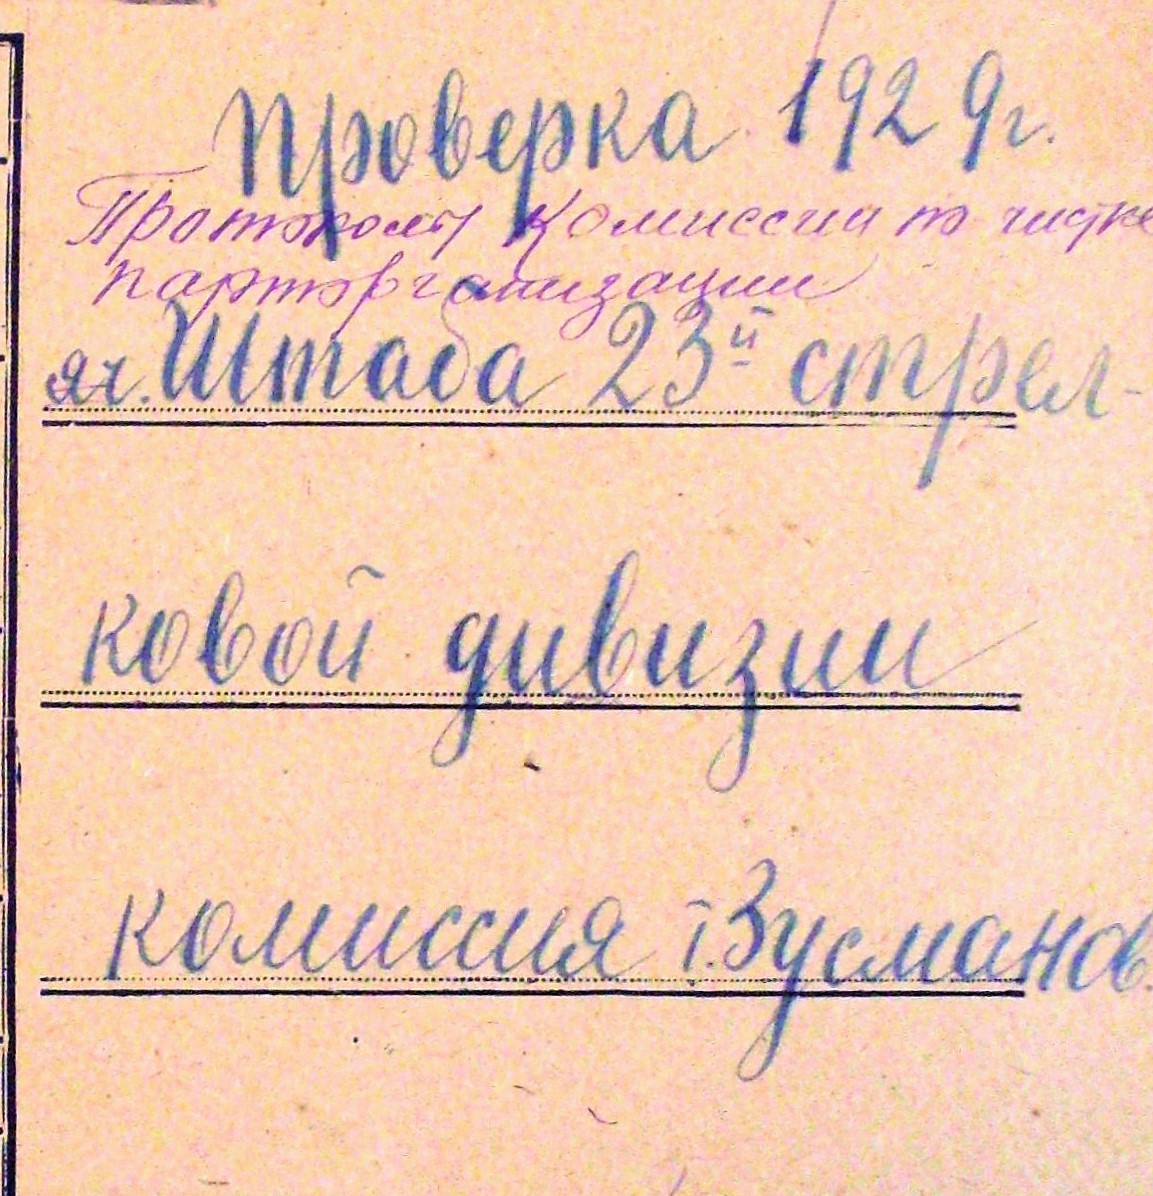 Проверка 1929г.
Протоколы Комиссии по чистке
парторганизации
яч. Штаба 23й стрел-
ковой дивизии
комиссия т. Зусманов